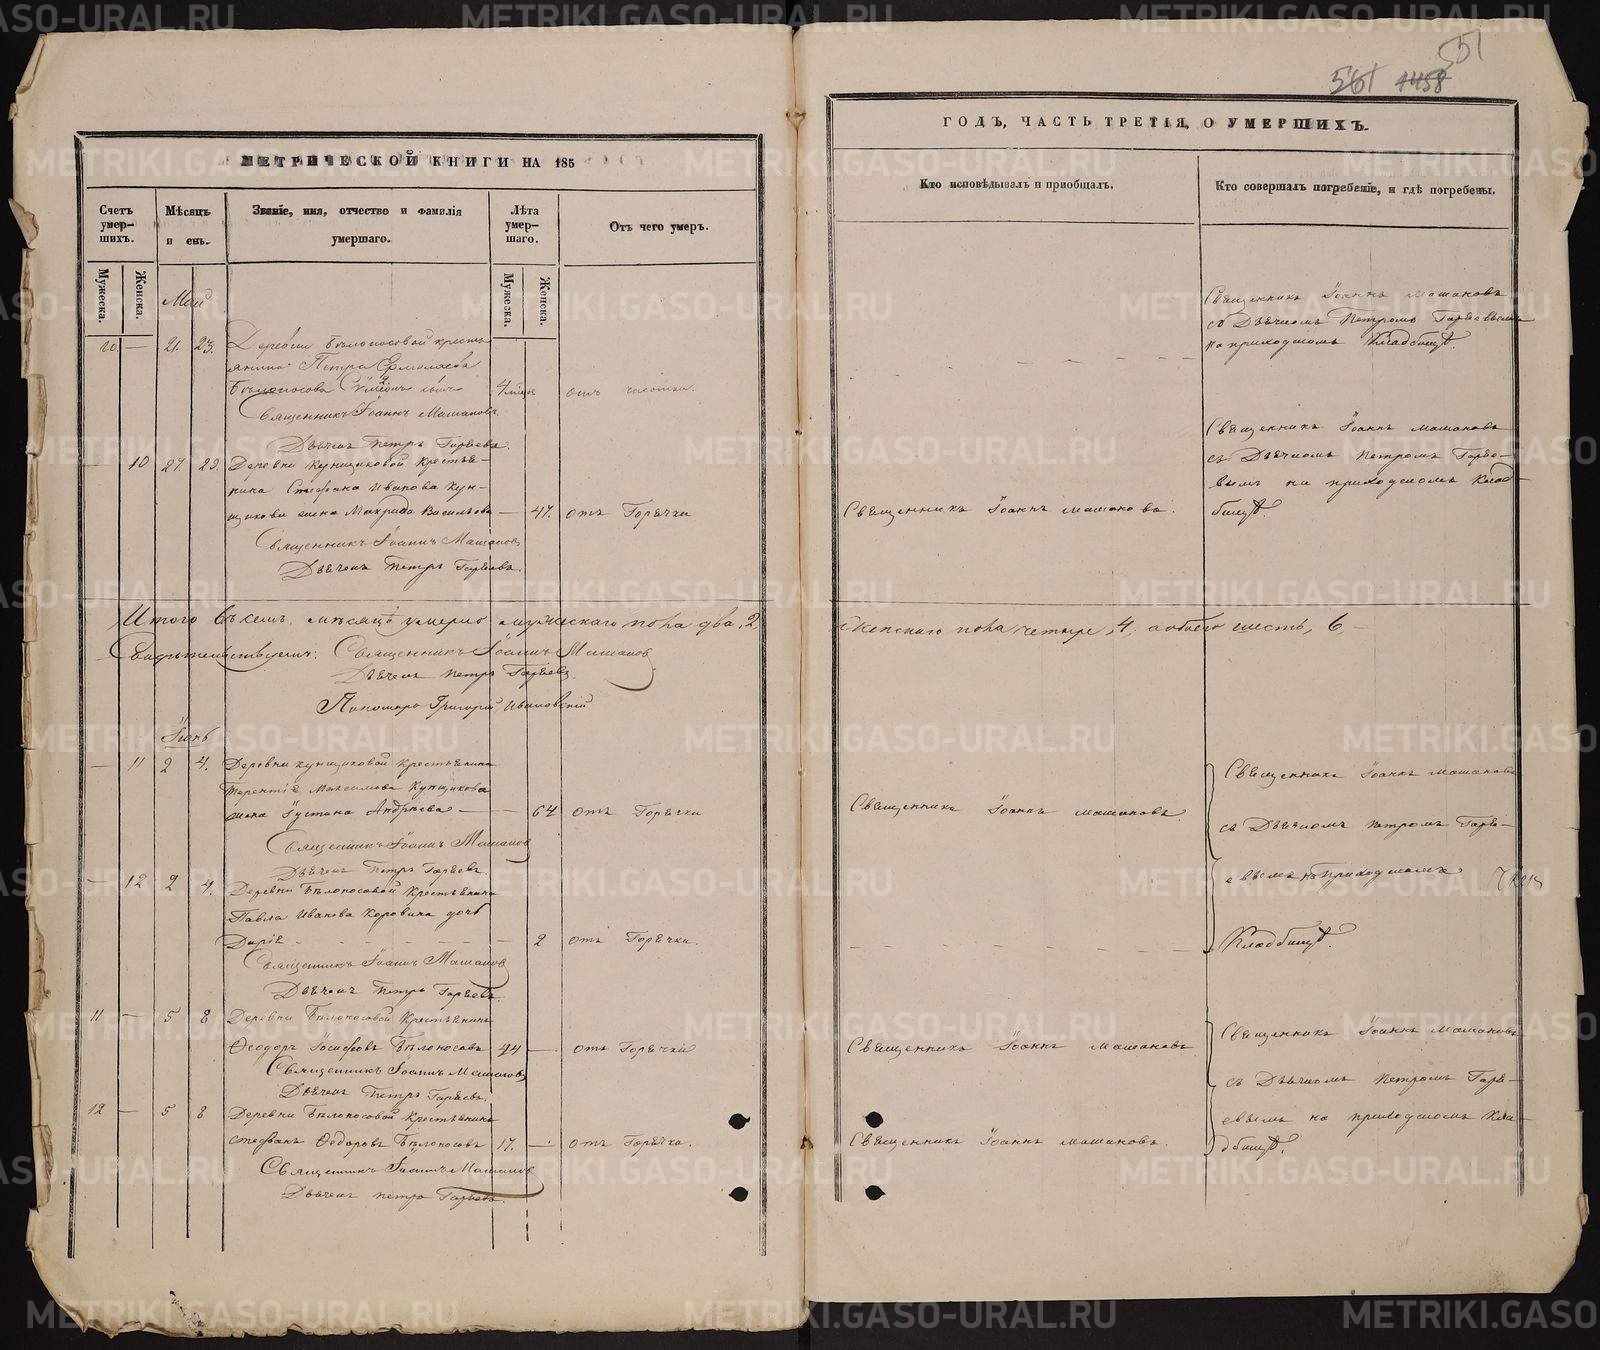 551
561 1458
МЕТРИЧЕСКОЙ КНИГИ НА 185
Счетъ умер-шихъ.
Мѣсяцъ и ень.
Званіе, имя, отчество и фамилія умершаго.
Лѣта умер-шаго.
Отъ чего умеръ.
Мужеска.
Женска.
Мужеска.
Женска.
Май
10. — 21. 23. Деревни Бѣлоносовой кресть
янина Петра Ермолаева
Бѣлоносова сынъ 4 от
Священникъ Іоаннъ Машановъ.
Дьячекъ Петръ Гаряевъ.
— 10 27. 29. Деревни Кунщиковой Крестья-
нина Стефана Иванова Кун-
щикова жена Макрида Васильева — 47. отъ Горячки
Священникъ Іоаннъ Машановъ
Дьячекъ Петръ Гаряевъ.
Итого въ семъ мѣсяцѣ умерло мужескаго пола два, 2
Свидѣтельствуемъ: Священникъ Іоаннъ Машановъ
Дьячекъ Петръ Гаряевъ.
Пономарь Григорій Ивановскій
Іюнь
— 11 2 4. Деревни Кунщиковой Крестьянина
Терентія Максимова Кунщикова
жена Іустина Андреева — — 64 отъ Горячки
Священникъ Іоаннъ Машановъ
Дьячекъ Петръ Гаряевъ.
— 12 2 4. Деревни Бѣлоносовой Крестьянина
Павла Иванова Коровина дочь
Дарія — 2 отъ Горячки.
Священникъ Іоаннъ Машановъ
Дьячекъ Петръ Гаряевъ.
11 — 5 8 Деревни Бѣлоносовой Крестьянинъ
Ѳеодоръ Іосифовъ Бѣлоносовъ 44 — отъ Горячки
Священникъ Іоаннъ Машановъ
Дьячекъ Петръ Гаряевъ.
12 — 5 8 Деревни Бѣлоносовой Крестьянинъ
Стефанъ Ѳедоровъ Бѣлоносовъ 17. — отъ Горячки.
Священникъ Іоаннъ Машановъ
Дьячекъ Петръ Гаряевъ.
ГОДЪ, ЧАСТЬ ТРЕТІЯ, О УМЕРШИХЪ.
Кто исповѣдывалъ и пріобщалъ.
Кто совершалъ погребеніе, и гдѣ погребены.
Священникъ Іоаннъ Машановъ
съ Дьячкомъ Петромъ Гаряевымъ
на приходскомъ Кладбищѣ.
Священникъ Іоаннъ Машановъ
съ Дьячкомъ Петромъ Гаряе-
вымъ на приходскомъ Клад-
Священникъ Іоаннъ Машановъ. бищѣ.
Женскаго пола четыре, 4, а обоего шесть, 6 —
Священникъ Іоаннъ Машановъ
Священникъ Іоаннъ Машановъ
съ Дьячкомъ Петромъ Гаря-
евымъ на приходскомъ
Кладбищѣ.
Священникъ Іоаннъ Машановъ
Священникъ Іоаннъ Машановъ
съ Дьячкомъ Петромъ Гаря-
евымъ на приходскомъ Кла-
Священникъ Іоаннъ Машановъ. дбищѣ.
METRIKI.GASO-URAL.RU